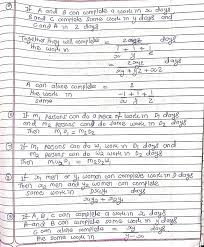 If A and B can complete a work in x days
B and C complete same work in y days and
C and A in z days
Together they will complete = 2xyz days
the work in
1/x + 1/y + 1/z
= 2xyz days
xy + yz + xz
A can alone complete = 2
the work in
same
If m1 persons can do a piece of work in D1 days
and m2 persons can do same work in D2 days
Then m1D1 = m2D2
If m1 persons can do w1 work in D1 days and
m2 persons can do w2 work in D2 days
Then m1D1w2 = m2D2w1
If x1 men or y1 women can complete work in D days
Then x2 men and y2 women can complete
same work in Dx1y1 days
x2y1 + x1y2
If A, B & C can complete a work in x days
A and B can complete same work in y days
C alone complete = xy days
the same work in y-x